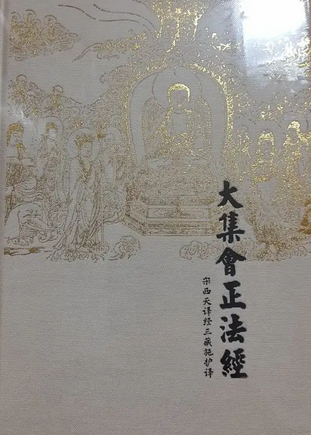 大集會正法經
宋西天译经三藏施护译